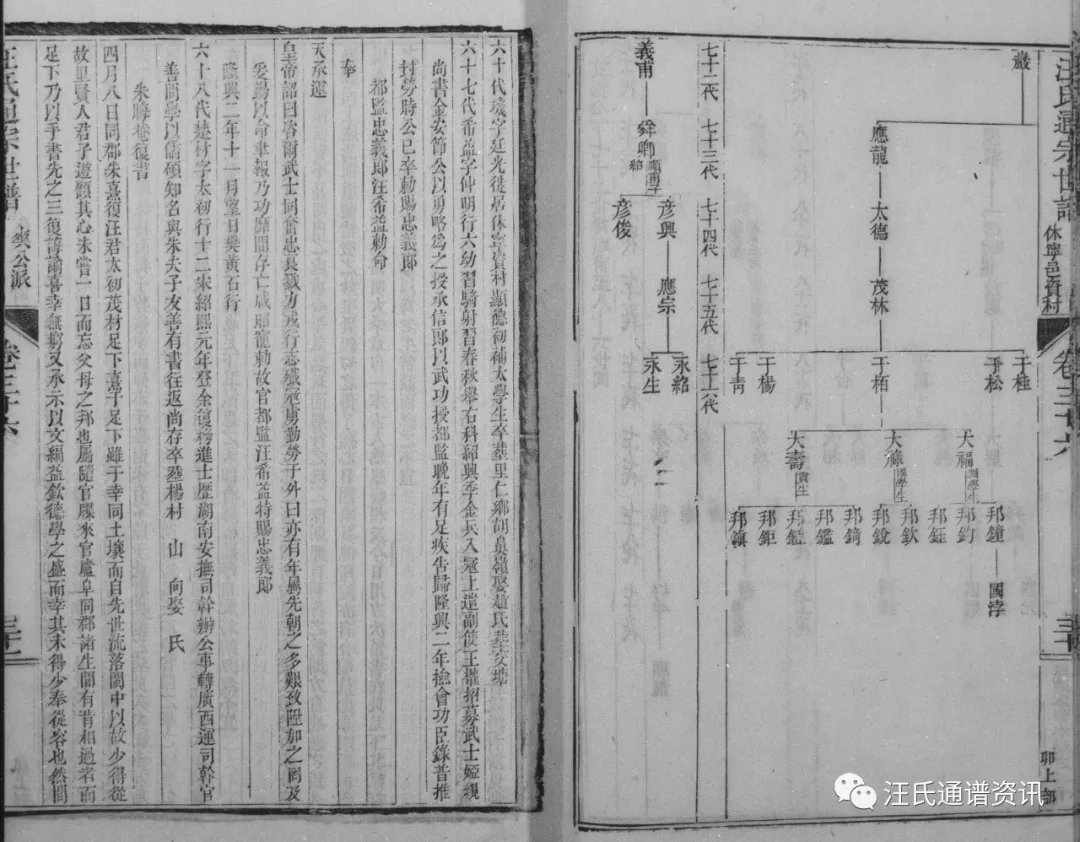 汪氏通宗世譜
休寧邑資村
卷三十六
三十
卯上部
巖
應龍
太德
茂林
于桂
于松
于栢
于楊
于青
大福 國學生
大祿 國學生
大壽 貢生
邦鐘
國浡
邦鈞
邦鈺
邦欽
邦銳
邦錡
邦鑑
邦鉅
邦鎮
七十二代
七十三代
七十四代
七十五代
七十六代
義甫
舜卿
彥興
應宗
永紹
永生
彥俊
六十七代希益字仲明行六幼習騎射習春秋舉右科紹興季金兵入寇上遣副使王權招募武士
尚書金安節公以勇略爲之授承信郎以武功授都監晚年有足疾告歸隆興二年撿會功臣錄普推
封勞時公已卒勅賜忠義郎
都監忠義郎汪希益勅命
奉
天承運
皇帝詔曰咨爾武士同奮忠長戟方戎行志殲寇虜勤勞于外曰亦有年屬先朝之多艱致陞加之
爰勤以命書報乃功歷間存亡咸昭寵勅故官都監汪希益特賜忠義郎
隆興二年十一月望日
六十八代楚材字太初行十二宋紹熙元年登余復榜進士歷湖南安撫司幹辦公事轉廣西運司幹官
善問學以儒碩知名與朱夫子友善有書往返尚存卒塟楊村 山 向娶 氏
朱晦菴復書
四月八日同郡朱熹復汪君太初茂材足下熹于足下雖于幸同土壤而自先世流落閩中以故少得從
故里賢人君子遊顧其心未嘗一日而忘父母之邦也屬隨官牒來官廬阜同郡諸生間有肯相過者而
足下乃以手書先之三復諄諭喜幸無窮又承示以文編益欽德學之盛而幸其未得少奉從容也然間
汪氏通宗世譜
爽公派
卷三十六
三十一
汪氏通谱资讯